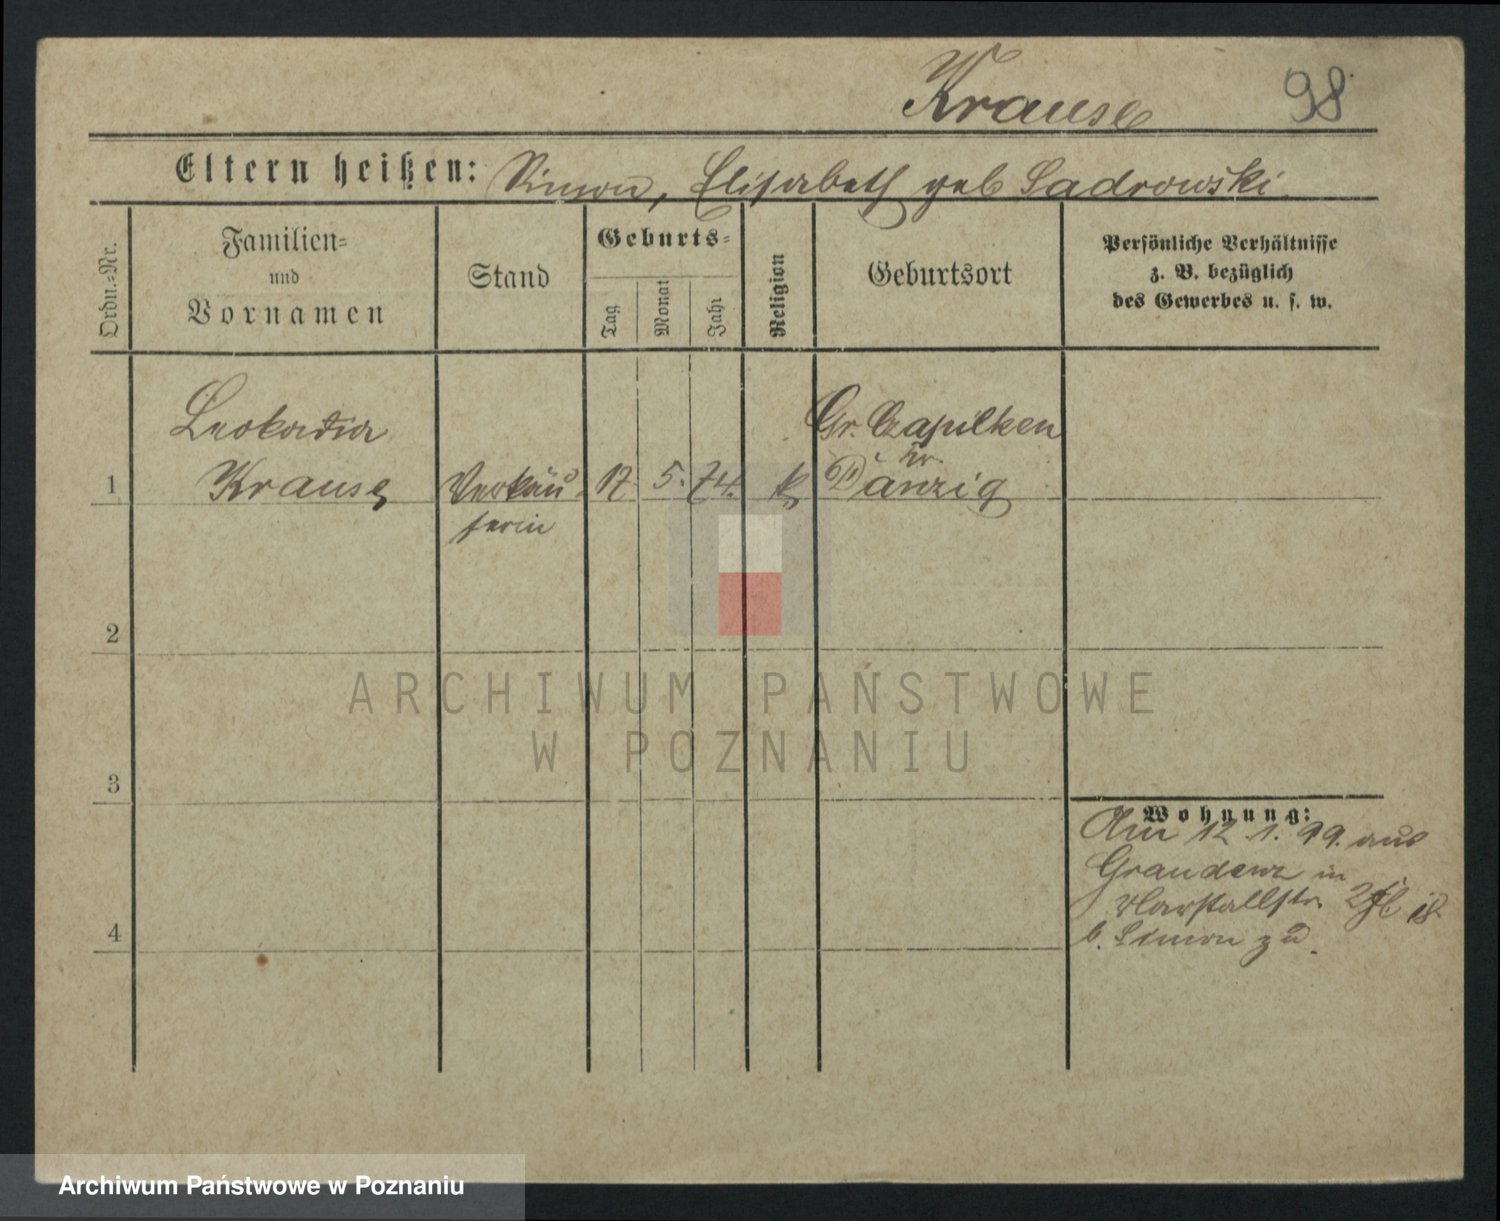 Krause 98
Eltern heißen: Simon, Elisabeth geb Sadrowski.
Ordn.-Nr.
Familien-
und
Vornamen
Stand
Geburts-
Tag
Monat
Jahr
Religion
Geburtsort
Persönliche Verhältnisse
z. B. bezüglich
des Gewerbes u. s. w.
Leokadia
Krause
Verkäu-
ferin
1
17. 5. 74. k
Gr. Czapilken
Kr.
Danzig
2
3
4
Wohnung:
Am 12. 1. 99. aus
Graudenz in
Marstallstr.
b. Simon zu.
ARCHIWUM PAŃSTWOWE
W POZNANIU
Archiwum Państwowe w Poznaniu